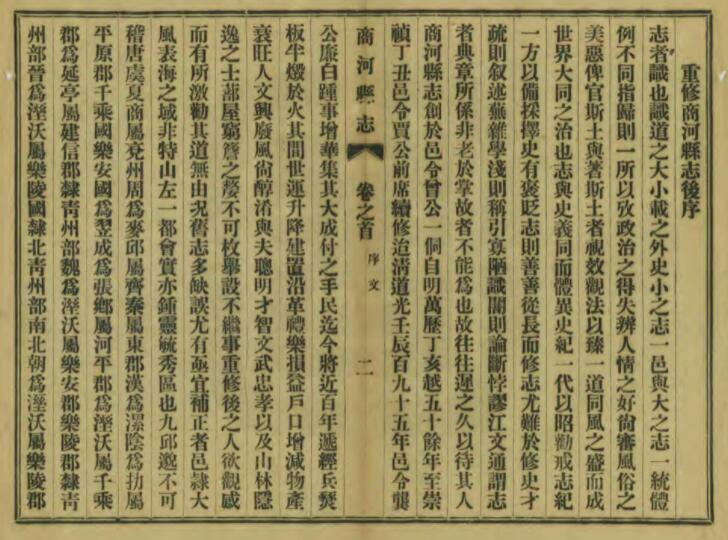 重修商河縣志後序
志者識也識道之大小載之外史小之志一邑與大之志一統體
例不同指歸則一所以攷政治之得失辨人情之好尙審風俗之
美惡俾官斯土與著斯土者視效觀法以臻一道同風之盛而成
世界大同之治也志與史義同而體異史紀一代以昭勸戒志紀
一方以備採擇史有褒貶志則善善從長而修志尤難於修史才
疏則叙述蕪雜學淺則稱引寡陋識闇則論斷悖謬江文通謂志
者典章所係非老於掌故者不能爲也故往往遲之久以待其人
商河縣志創於邑令曾公一侗自明萬歷丁亥越五十餘年至崇
禎丁丑邑令賈公前席續修迨淸道光壬辰百九十五年邑令龔
商河縣志
卷之首
序文
二
公廉白踵事增華集其大成付之手民迄今將近百年遞經兵燹
板半燬於火其間世運升降建置沿革禮樂損益戶口增減物產
衰旺人文興廢風尙醇淆與夫聰明才智文武忠孝以及山林隱
逸之士蔀屋窮簷之嫠不可枚舉設不繼事重修後之人欲觀感
而有所激勸其道無由况舊志多缺誤尤有亟宜補正者邑隷大
風表海之域非特山左一都會實亦鍾靈毓秀區也九邱邈不可
稽唐虞夏商屬兗州周爲麥邱屬齊秦屬東郡漢爲漯陰爲朸屬
平原郡千乘國樂安國爲翌成爲張鄉屬河平郡爲溼沃屬千乘
郡爲延亭屬建信郡隸靑州部魏爲溼沃屬樂安郡樂陵郡隸靑
州部晉爲溼沃屬樂陵國隸北靑州部南北朝爲溼沃屬樂陵郡